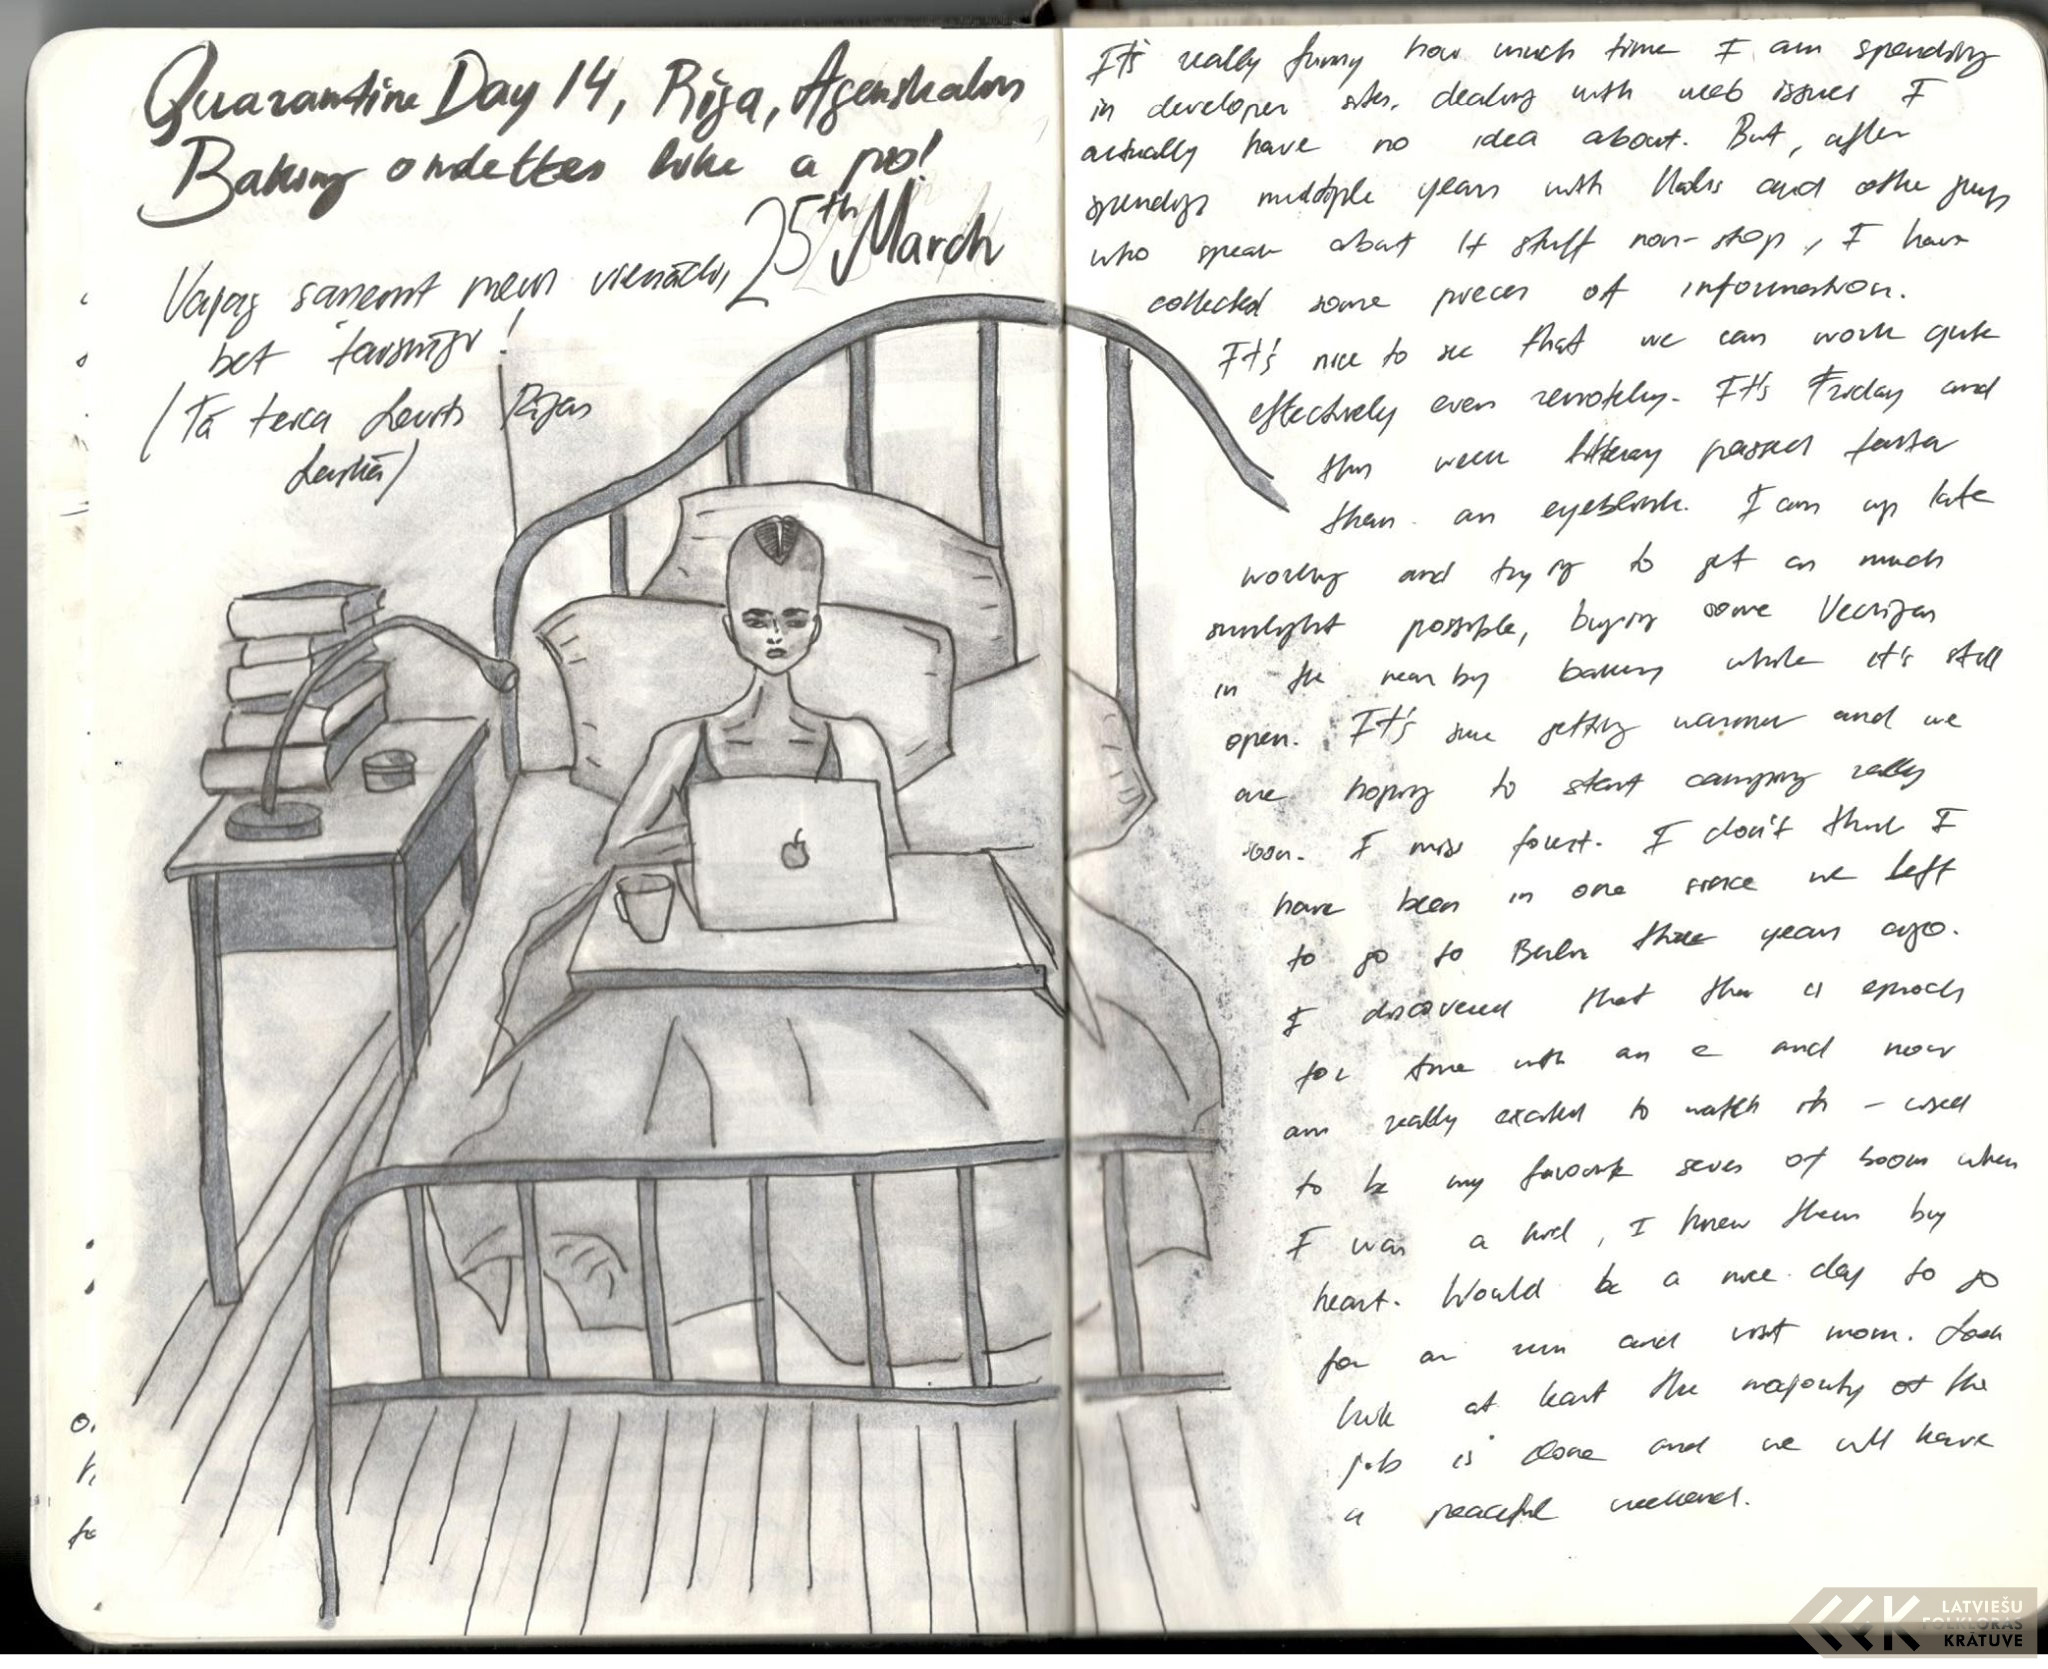 Quarantine Day 14, Rīga, Āgenskalns
Baking omelettes like a pro!
25th March
Vajag saņemt nevis vienādi,
bet taisnīgi!
(Tā teica Levits Rīgas
Laikā)
It's really funny how much time I am spending
in developer sites, dealing with web issues I
actually have no idea about. But, after
spendign multiple years with and othe guys
who speak about it stuff non-stop, I have
collected some pieces of information.
It's nice to see that we can work quite
effectively even remotely. It's Friday and
this week litteray passed faster
then an eyeblink. I am up late
working and trying to get as much
sunlight possible, buying some Vecrīgas
in the near by bakery while it's still
open. It's sure getting warmer and we
are hoping to start camping really
soon. I miss forest. I don't think I
have been in one since we left
to go to Berlin three years ago.
I discovered that ther is epizods
for time with an e and now
am really excited to watch it - used
to be my favourite series of books when
I was a kid, I knew them by
heart. Would be a nice day to go
for a run and visit mom. Look
like at least the majority of the
job is done and we will have
a peaceful weekend.
LATVIEŠU
FOLKLORAS
KRĀTUVE